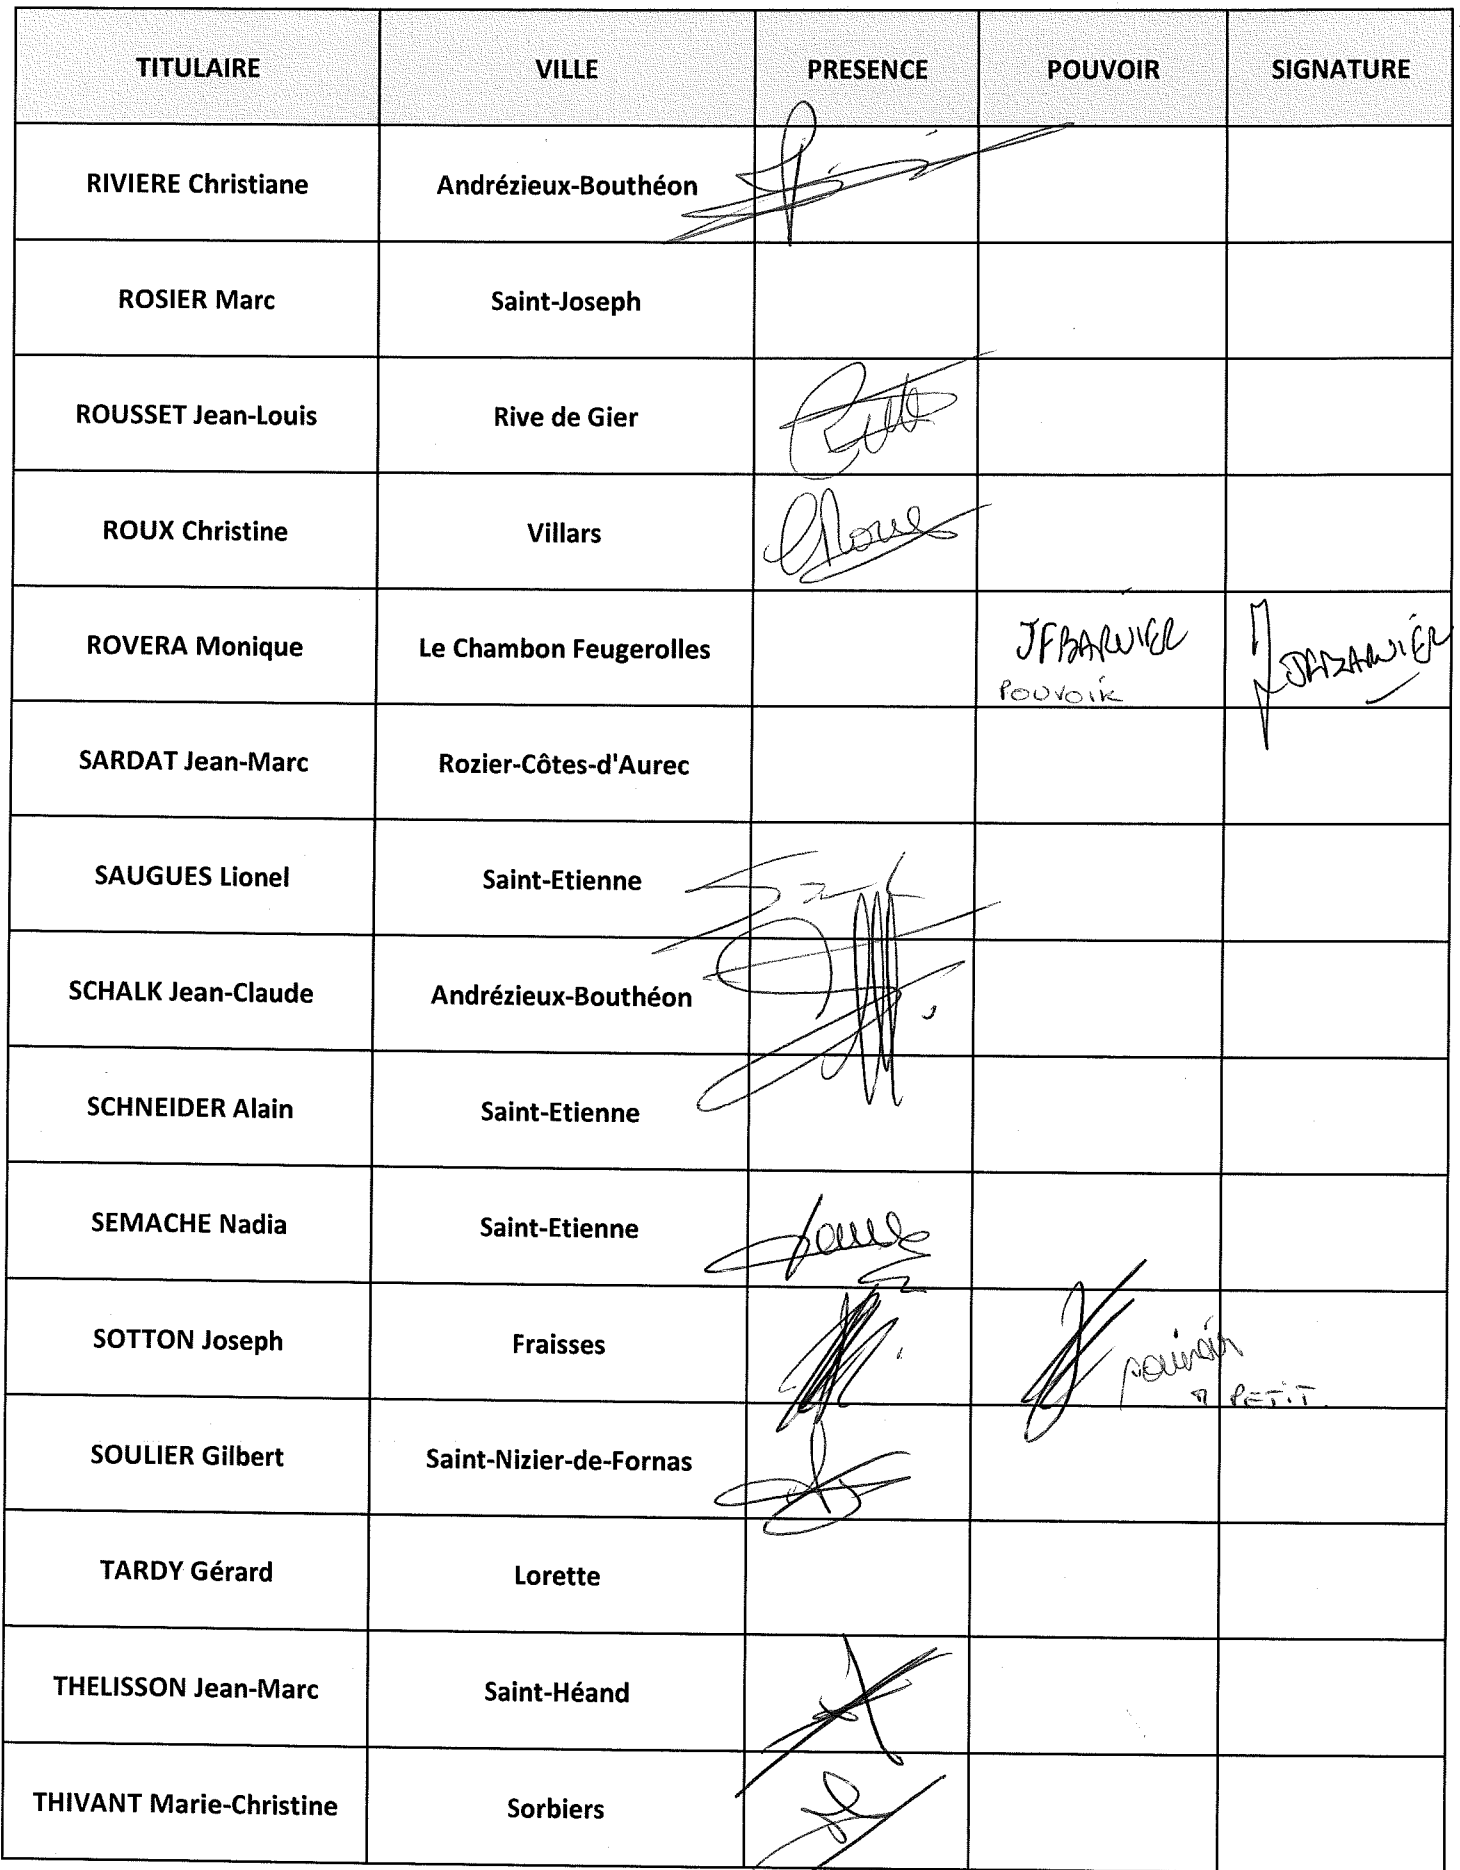 TITULAIRE VILLE PRESENCE POUVOIR SIGNATURE
RIVIERE Christiane Andrézieux-Bouthéon
ROSIER Marc Saint-Joseph
ROUSSET Jean-Louis Rive de Gier
ROUX Christine Villars
ROVERA Monique Le Chambon Feugerolles JFBARNIER JFBARNIER
POUVOIR
SARDAT Jean-Marc Rozier-Côtes-d'Aurec
SAUGUES Lionel Saint-Etienne
SCHALK Jean-Claude Andrézieux-Bouthéon
SCHNEIDER Alain Saint-Etienne
SEMACHE Nadia Saint-Etienne
SOTTON Joseph Fraisses pouvoir
PETIT
SOULIER Gilbert Saint-Nizier-de-Fornas
TARDY Gérard Lorette
THELISSON Jean-Marc Saint-Héand
THIVANT Marie-Christine Sorbiers